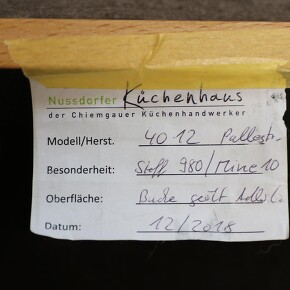 Nussdorfer Küchenhaus
der Chiemgauer Küchenhandwerker
Modell/Herst. 4012
Besonderheit: Stoff 980/Mine 10
Oberfläche: Buche geölt
Datum: 12/2018